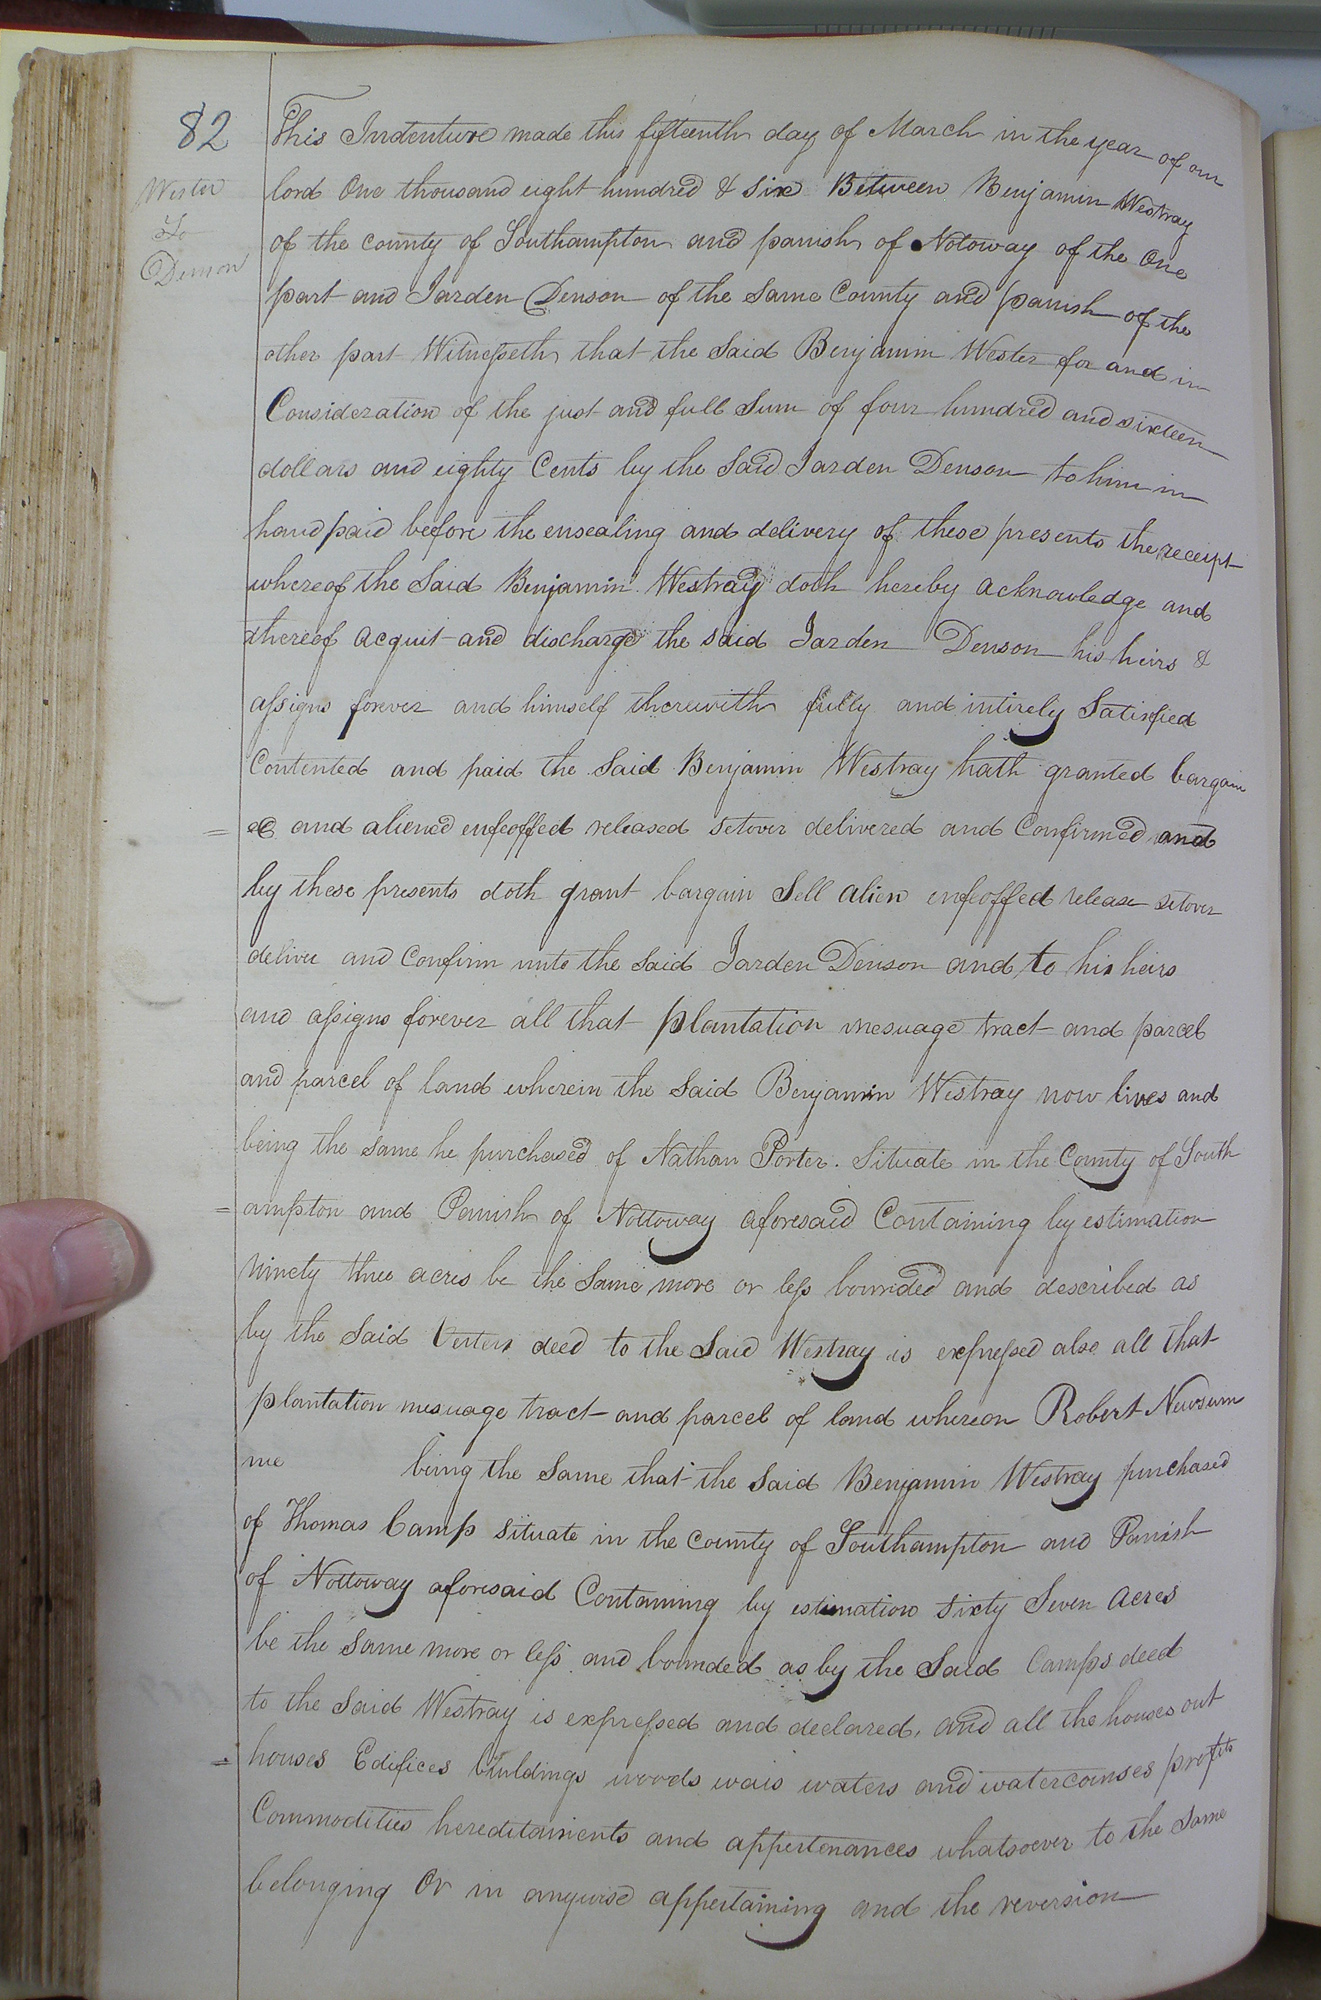 82
Wester
To
Denson
This Indenture made this fifteenth day of March in the year of our
lord One thousand eight hundred & Six Between Benjamin Westray
of the county of Southampton and parish of Notoway of the One
part and Jarden Denson of the Same County and parish of the
other part Witnesseth that the Said Benjamin Wester for and in
Consideration of the just and full Sum of four hundred and sixteen
dollars and eighty Cents by the Said Jarden Denson to him in
hand paid before the ensealing and delivery of these presents the receipt
whereof the Said Benjamin Westray doth hereby acknowledge and
thereof acquit and discharge the said Jarden Denson his heirs &
assigns forever and himself therewith fully and intirely Satisfied
Contented and paid the Said Benjamin Westray hath granted bargain
= ed and aliened enfeoffed released setover delivered and Confirmed and
by these presents doth grant bargain Sell alien enfeoffed release setover
deliver and Confirm unto the Said Jarden Denson and to his heirs
and assigns forever all that plantation mesuage tract and parcel
and parcel of land wherein the Said Benjamin Westray now lives and
being the same he purchased of Nathan Porter. Situate in the County of South
= ampton and Parish of Nottoway aforesaid Containing by estimation
Ninety three acres be the Same more or less bounded and described as
by the Said deed to the Said Westray is expressed also all that
plantation mesuage tract and parcel of land whereon Robert Newsum
me being the Same that the Said Benjamin Westray purchased
of Thomas Camp situate in the county of Southampton and Parish
of Nottoway aforesaid Containing by estimation sixty Seven Acres
be the Same more or less and bounded as by the Said Camps deed
to the Said Westray is expressed and declared, and all the houses out
= houses Edifices buildings woods wais waters and watercourses profits
Commodities hereditaments and appertenances whatsoever to the Same
belonging Or in anywise appertaining and the reversion